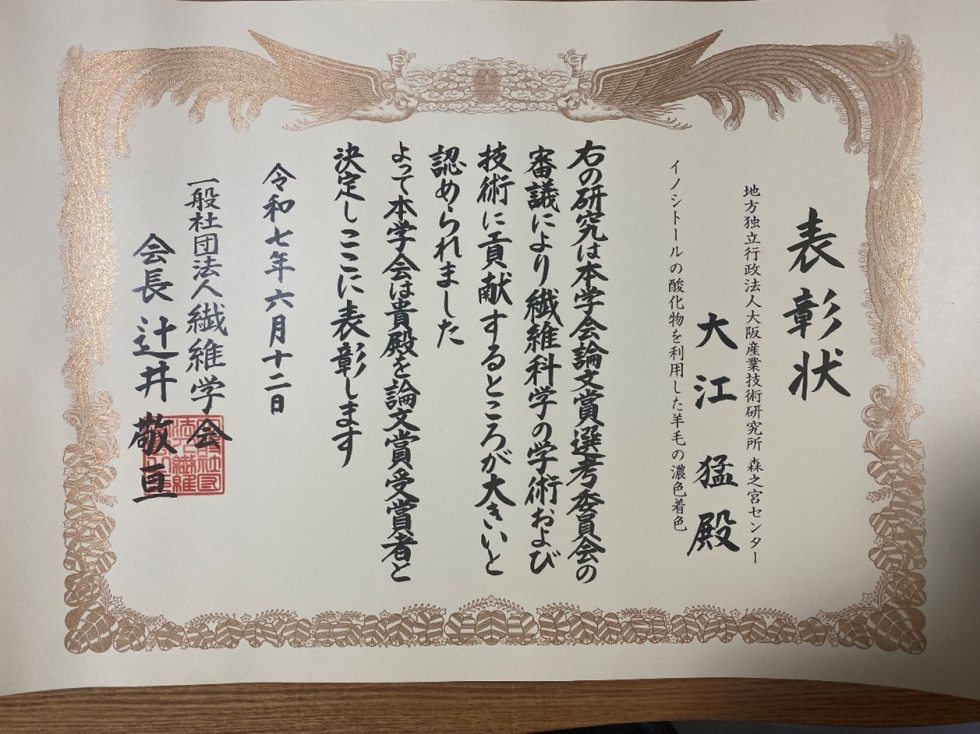 表彰状
地方独立行政法人大阪産業技術研究所 森之宮センター
大江 猛 殿
イノシトールの酸化物を利用した羊毛の濃色着色
右の研究は本学会論文賞選考委員会の
審議により繊維科学の学術および
技術に貢献するところが大きいと
認められました
よって本学会は貴殿を論文賞受賞者と
決定しここに表彰します
令和七年六月十二日
一般社団法人繊維学会
会長 辻井 敬亘